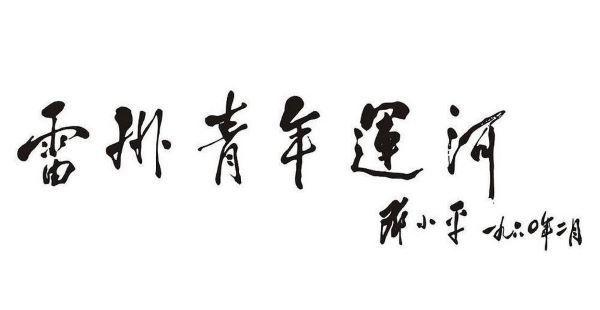 雷州青年運河
邓小平 一九六〇年二月